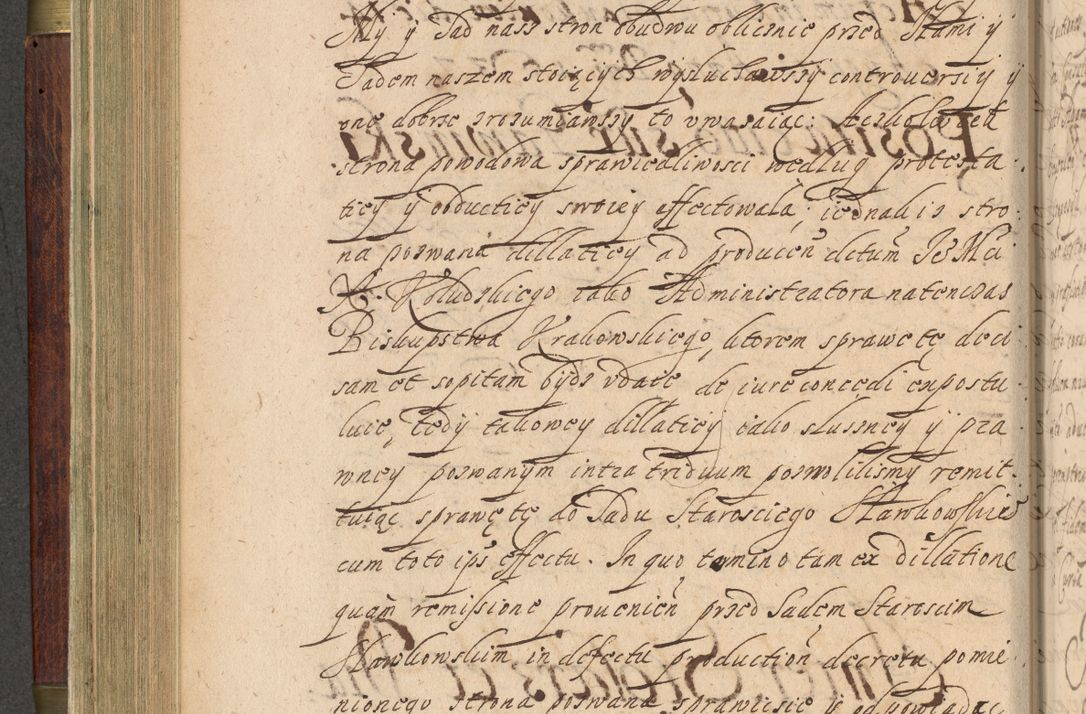 My y Sad nasz stron obudwu oblicznie przed Nami y
Sadem naszem stoiących wysłuchawszy controuersiy y
one dobrze zrozumiawszy to vwazaiąc: Aczkolwiek
strona powodowa sprawiedliwosci według protesta
tiey y obductiey swoiey effectowała; iednak iz stro
na pozwana dillatiey ad producen̄ dictum̄ Je Mci
X. Kołudzkiego iako Administratora natenczas
Biskupstwa Krakowskiego, ktorem sprawę tę deci
sam et sopitam bydz vdaie de iure concedi expostu
luie, tedy takowey dillatiey iako słuszney y pra
wney pozwanym intra triduum pozwolilismy remit
tuiąc sprawę tę do Sadu Starosciego Sławkowskie°
cum toto ips effectu. In quo termino tam ex dillatione
quam̄ remissione prouenien̄ przed Sadem Staroscim
Sławkowskim in defectu production̄ decretu pomie
nionego strona pozwana sprawiesie y odpowiadac